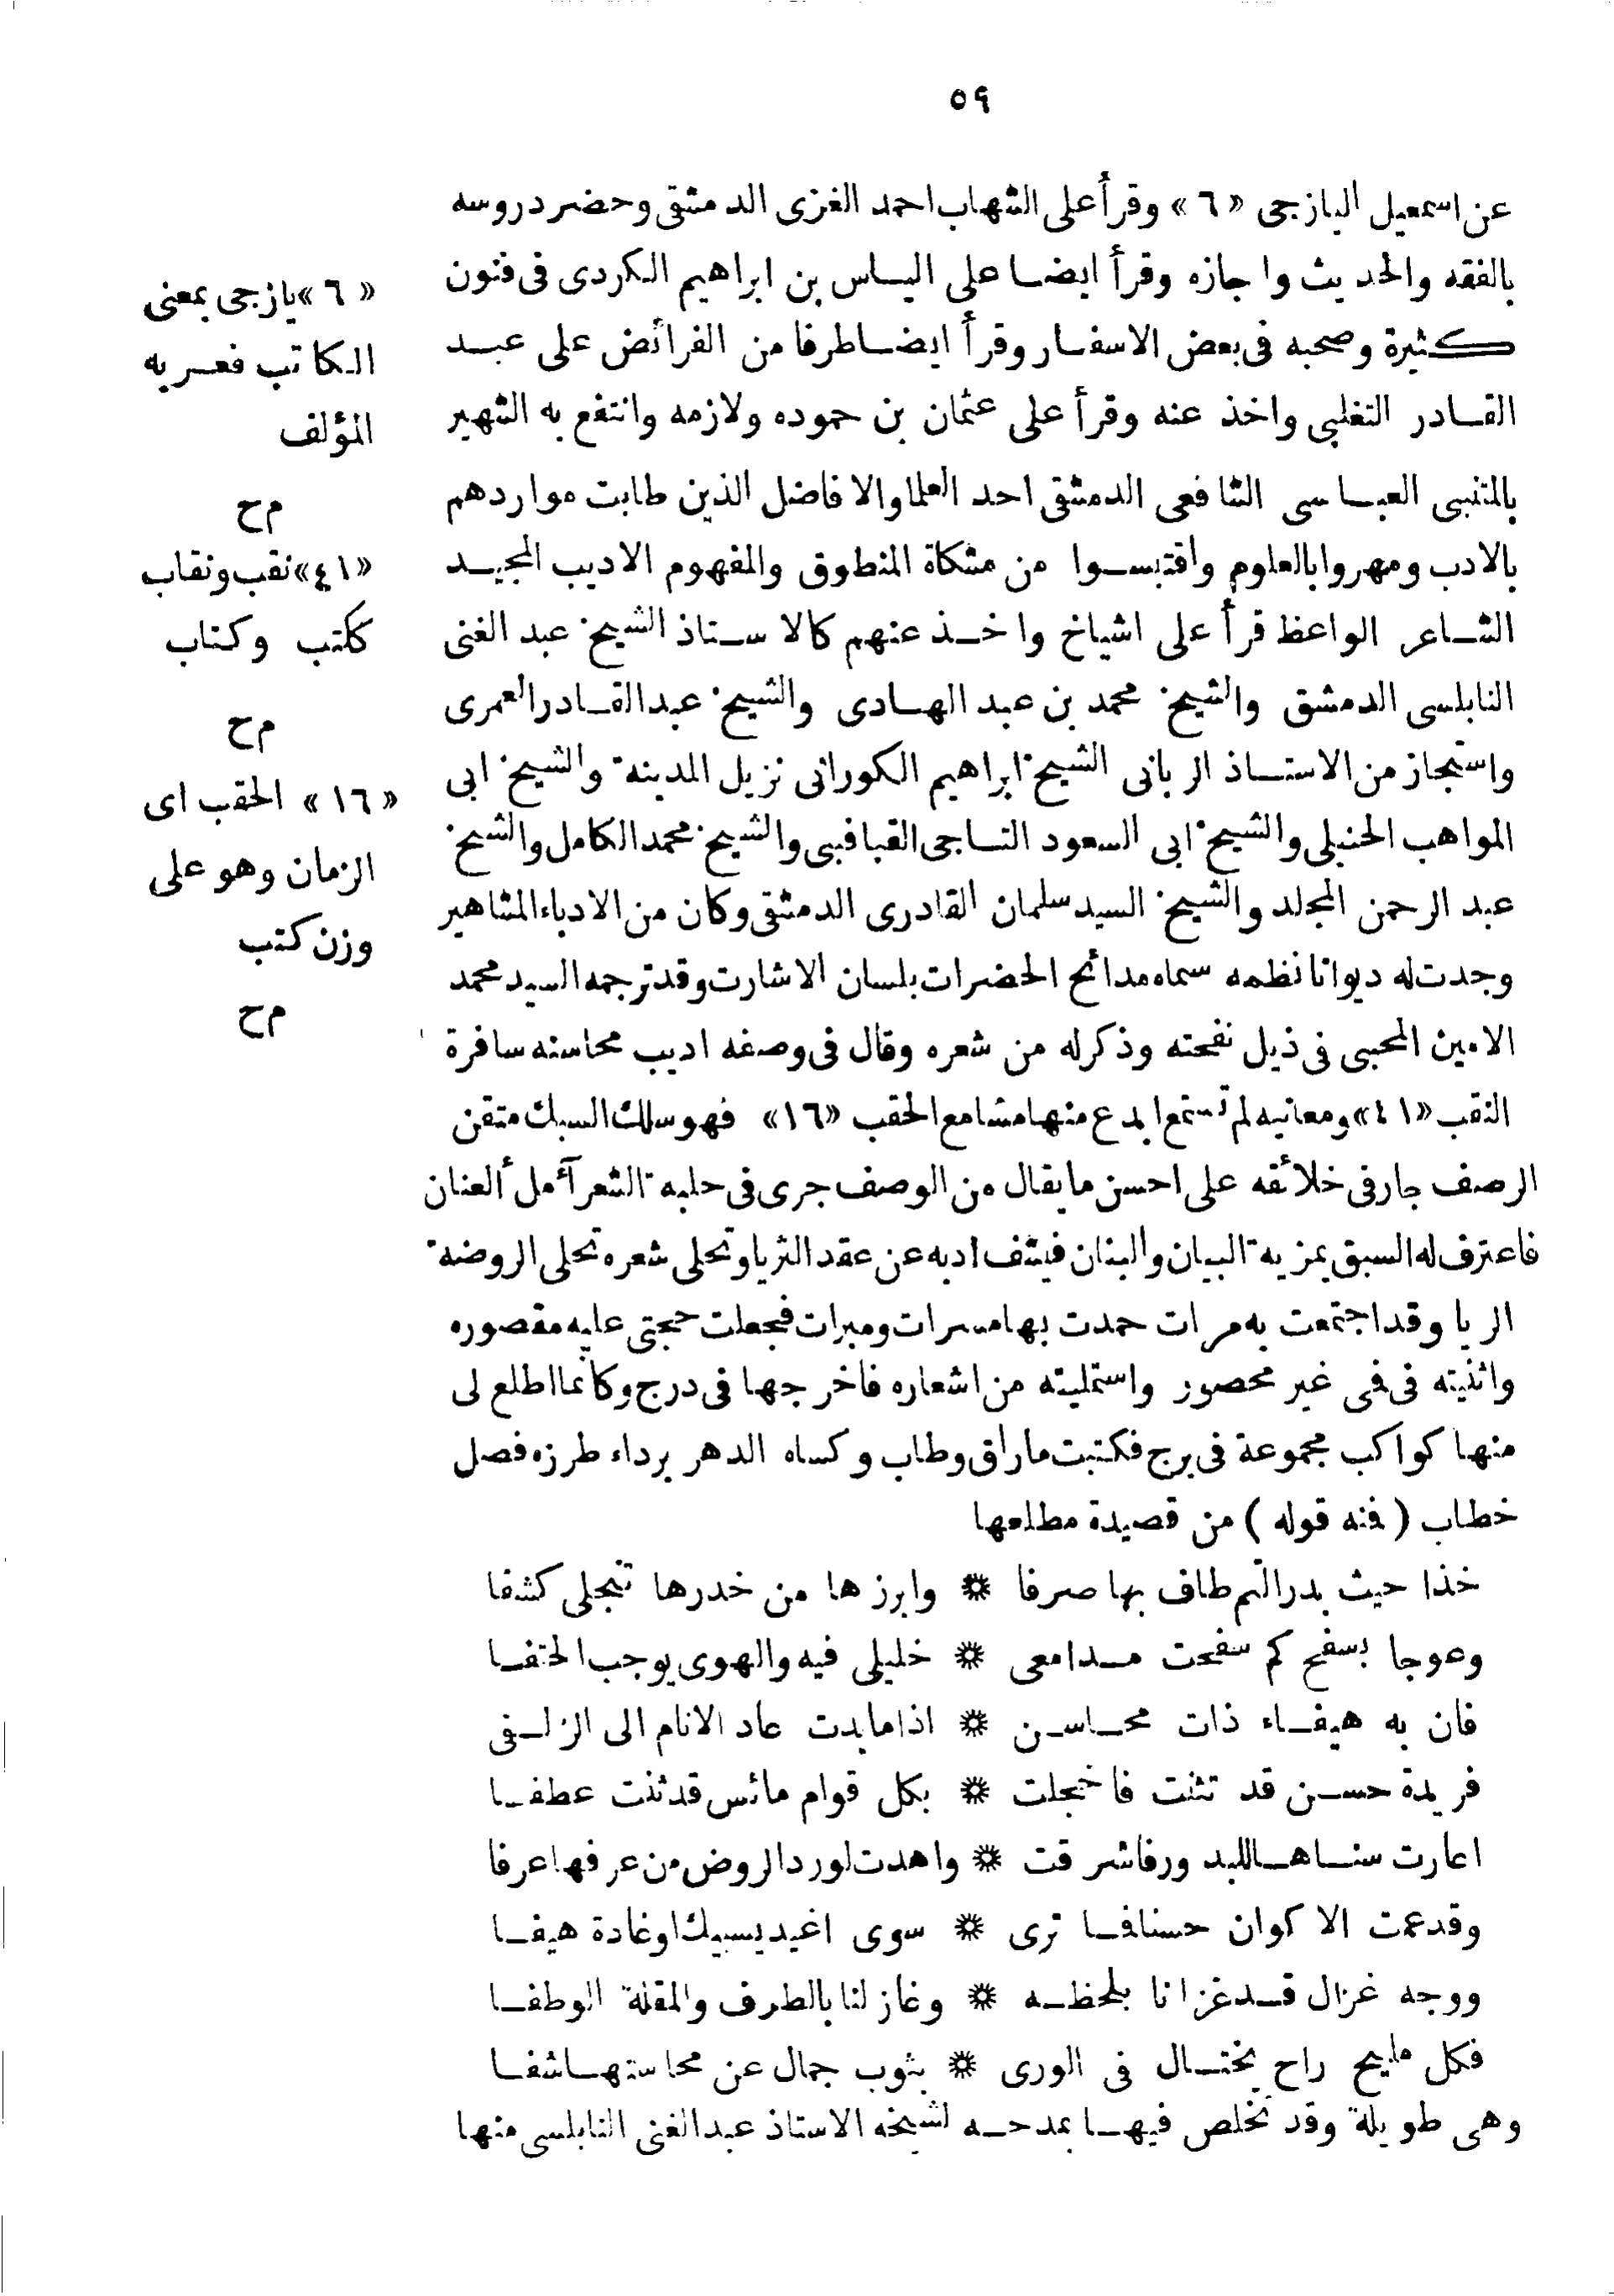 ٥٩
عن اسمعيل اليازجى «٦» وقرأ على الشهاب احمد الغزى الدمشقى وحضر دروسه
بالفقه والحديث واجازه وقرأ ايضا على الياس بن ابراهيم الكردى فى فنون
كثيرة وصحبه فى بعض الاسفار وقرأ ايضا طرفا من الفرائض على عبد
القادر التغلبى واخذ عنه وقرأ على عثمان بن حموده ولازمه وانتفع به الشهير
بالمتنبى العباسى الشافعى الدمشقى احد العلما والافاضل الذين طابت مواردهم
بالادب ومهروا بالعلوم واقتبسوا من مشكاة المنطوق والمفهوم الاديب المجيد
الشاعر الواعظ قرأ على اشياخ واخذ عنهم كالاستاذ الشيخ عبد الغنى
النابلسى الدمشقى والشيخ محمد بن عبد الهادى والشيخ عبد القادر العمرى
واستجاز من الاستاذ الربانى الشيخ ابراهيم الكورانى نزيل المدينة والشيخ ابى
المواهب الحنبلى والشيخ ابى السعود التاجى القباقبى والشيخ محمد الكامل والشيخ
عبد الرحمن المجلد والشيخ السيد سلمان القادرى الدمشقى وكان من الادباء المشاهير
وجدت له ديوانا نظمه سماه مدائح الحضرات بلسان الاشارت وقد ترجمه السيد محمد
الامين المحبى فى ذيل نفحته وذكر له من شعره وقال فى وصفه اديب محاسنه سافرة
النقب «٤١» ومعانيه لم تستمع ابدع منها مسامع الحقب «١٦» فهو سلك السبك متقن
الرصف جار فى خلائقه على احسن ما يقال من الوصف جرى فى حلبة الشعر آمل العنان
فاعترف له السبق بمزية البيان والبنان فيشف ادبه عن عقد الثريا وتحلى شعره تحلى الروضة
الريا وقد اجتمعت به مرات حمدت بها مسرات ومبرات فجعلت حجتى عليه مقصوره
واثنيته فى فى غير محصور واستمليته من اشعاره فاخرجها فى درج وكانما اطلع لى
منها كواكب مجموعة فى برج فكتبت ما راق وطاب وكساه الدهر برداء طرزه فصل
خطاب (فمنه قوله) من قصيدة مطلعها
خذا حيث بدر التم طاف بها صرفا ☼ وابرزها من خدرها تنجلى كشفا
وعوجا بسفح كم سفحت مدامعى ☼ خليلى فيه والهوى يوجب الحتفا
فان به هيفاء ذات محاسن ☼ اذا ما بدت عاد الانام الى الزلفى
فريدة حسن قد تثنت فاخجلت ☼ بكل قوام مائس قد ثنت عطفا
اعارت سناها للبدور فاشرقت ☼ واهدت لورد الروض من عرفها عرفا
وقد عمت الاكوان حسنا فما ترى ☼ سوى اغيد يسبيك او غادة هيفا
ووجه غزال قد غزانا بلحظه ☼ وغازلنا بالطرف والمقلة الوطفا
فكل مليح راح يختال فى الورى ☼ بثوب جمال عن محاسنها شفا
وهى طويلة وقد تخلص فيها بمدحه لشيخه الاستاذ عبد الغنى النابلسى منها
«٦» يازجى بمعنى
الكاتب فعربه
المؤلف
م ح
«٤١» نقب ونقاب
ككتب وكتاب
م ح
«١٦» الحقب اى
الزمان وهو على
وزن كتب
م ح